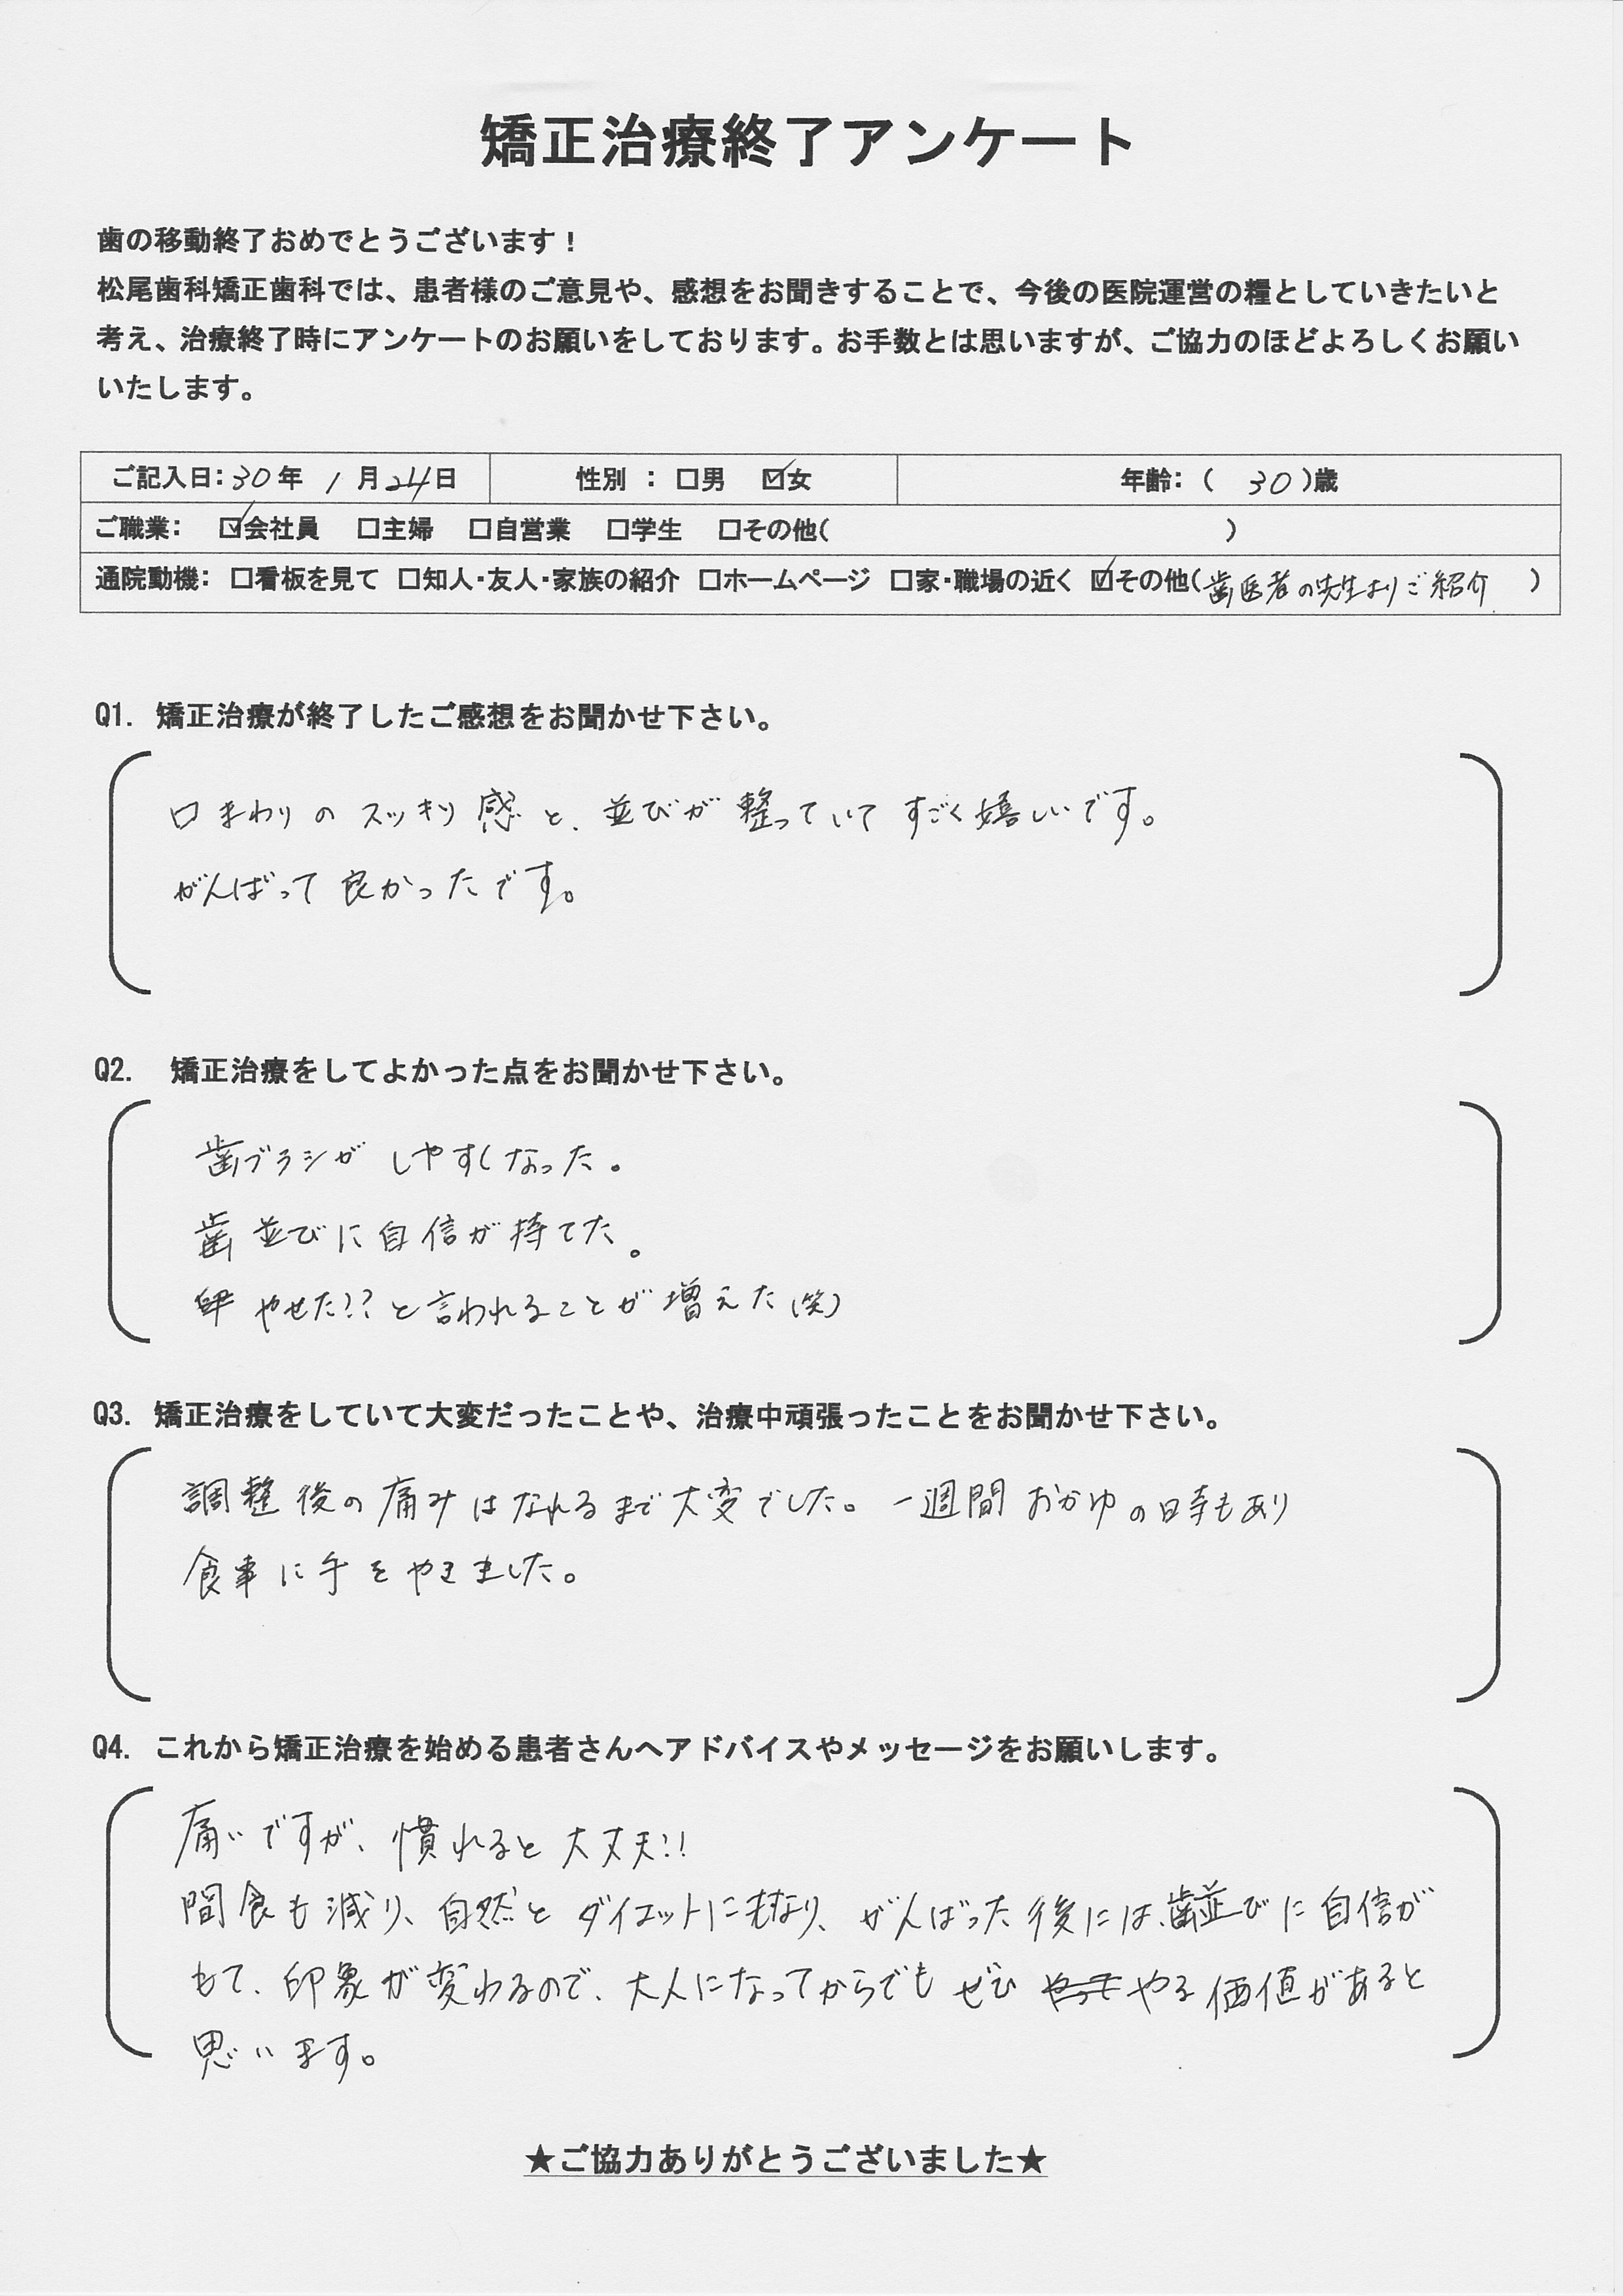 矯正治療終了アンケート
歯の移動終了おめでとうございます！
松尾歯科矯正歯科では、患者様のご意見や、感想をお聞きすることで、今後の医院運営の糧としていきたいと
考え、治療終了時にアンケートのお願いをしております。お手数とは思いますが、ご協力のほどよろしくお願い
いたします。
ご記入日：30年 1月24日 性別 ： □男 ☑女 年齢：（ 30 ）歳
ご職業： ☑会社員 □主婦 □自営業 □学生 □その他（ ）
通院動機： □看板を見て □知人・友人・家族の紹介 □ホームページ □家・職場の近く ☑その他（歯医者の先生よりご紹介 ）
Q1. 矯正治療が終了したご感想をお聞かせ下さい。
口まわりのスッキリ感と、並びが整っていてすごく嬉しいです。
がんばって良かったです。
Q2. 矯正治療をしてよかった点をお聞かせ下さい。
歯ブラシがしやすくなった。
歯並びに自信が持てた。
やせた!??と言われることが増えた(笑)
Q3. 矯正治療をしていて大変だったことや、治療中頑張ったことをお聞かせ下さい。
調整後の痛みはなれるまで大変でした。一週間おかゆの時もあり
食事に手をやきました。
Q4. これから矯正治療を始める患者さんへアドバイスやメッセージをお願いします。
痛いですが、慣れると大丈夫!!
間食も減り、自然とダイエットにもなり、がんばった後には、歯並びに自信が
もて、印象が変わるので、大人になってからでもぜひやる価値があると
思います。
★ご協力ありがとうございました★